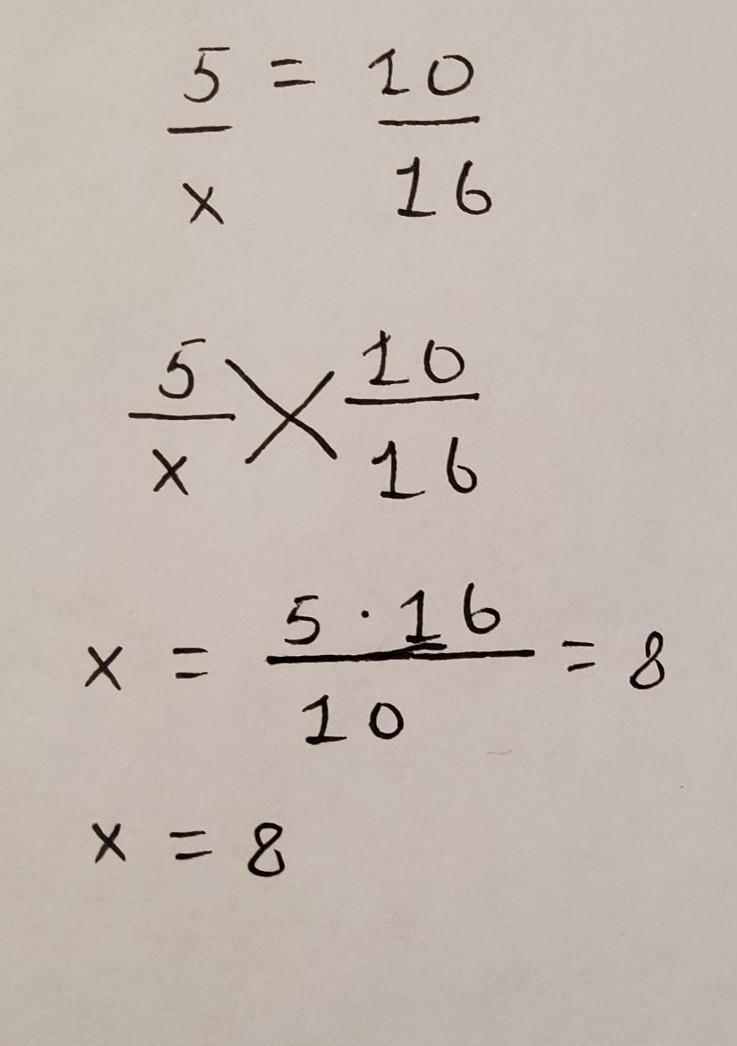 5/x = 10/16
5/x ╳ 10/16
x = 5 · 16/10 = 8
x = 8